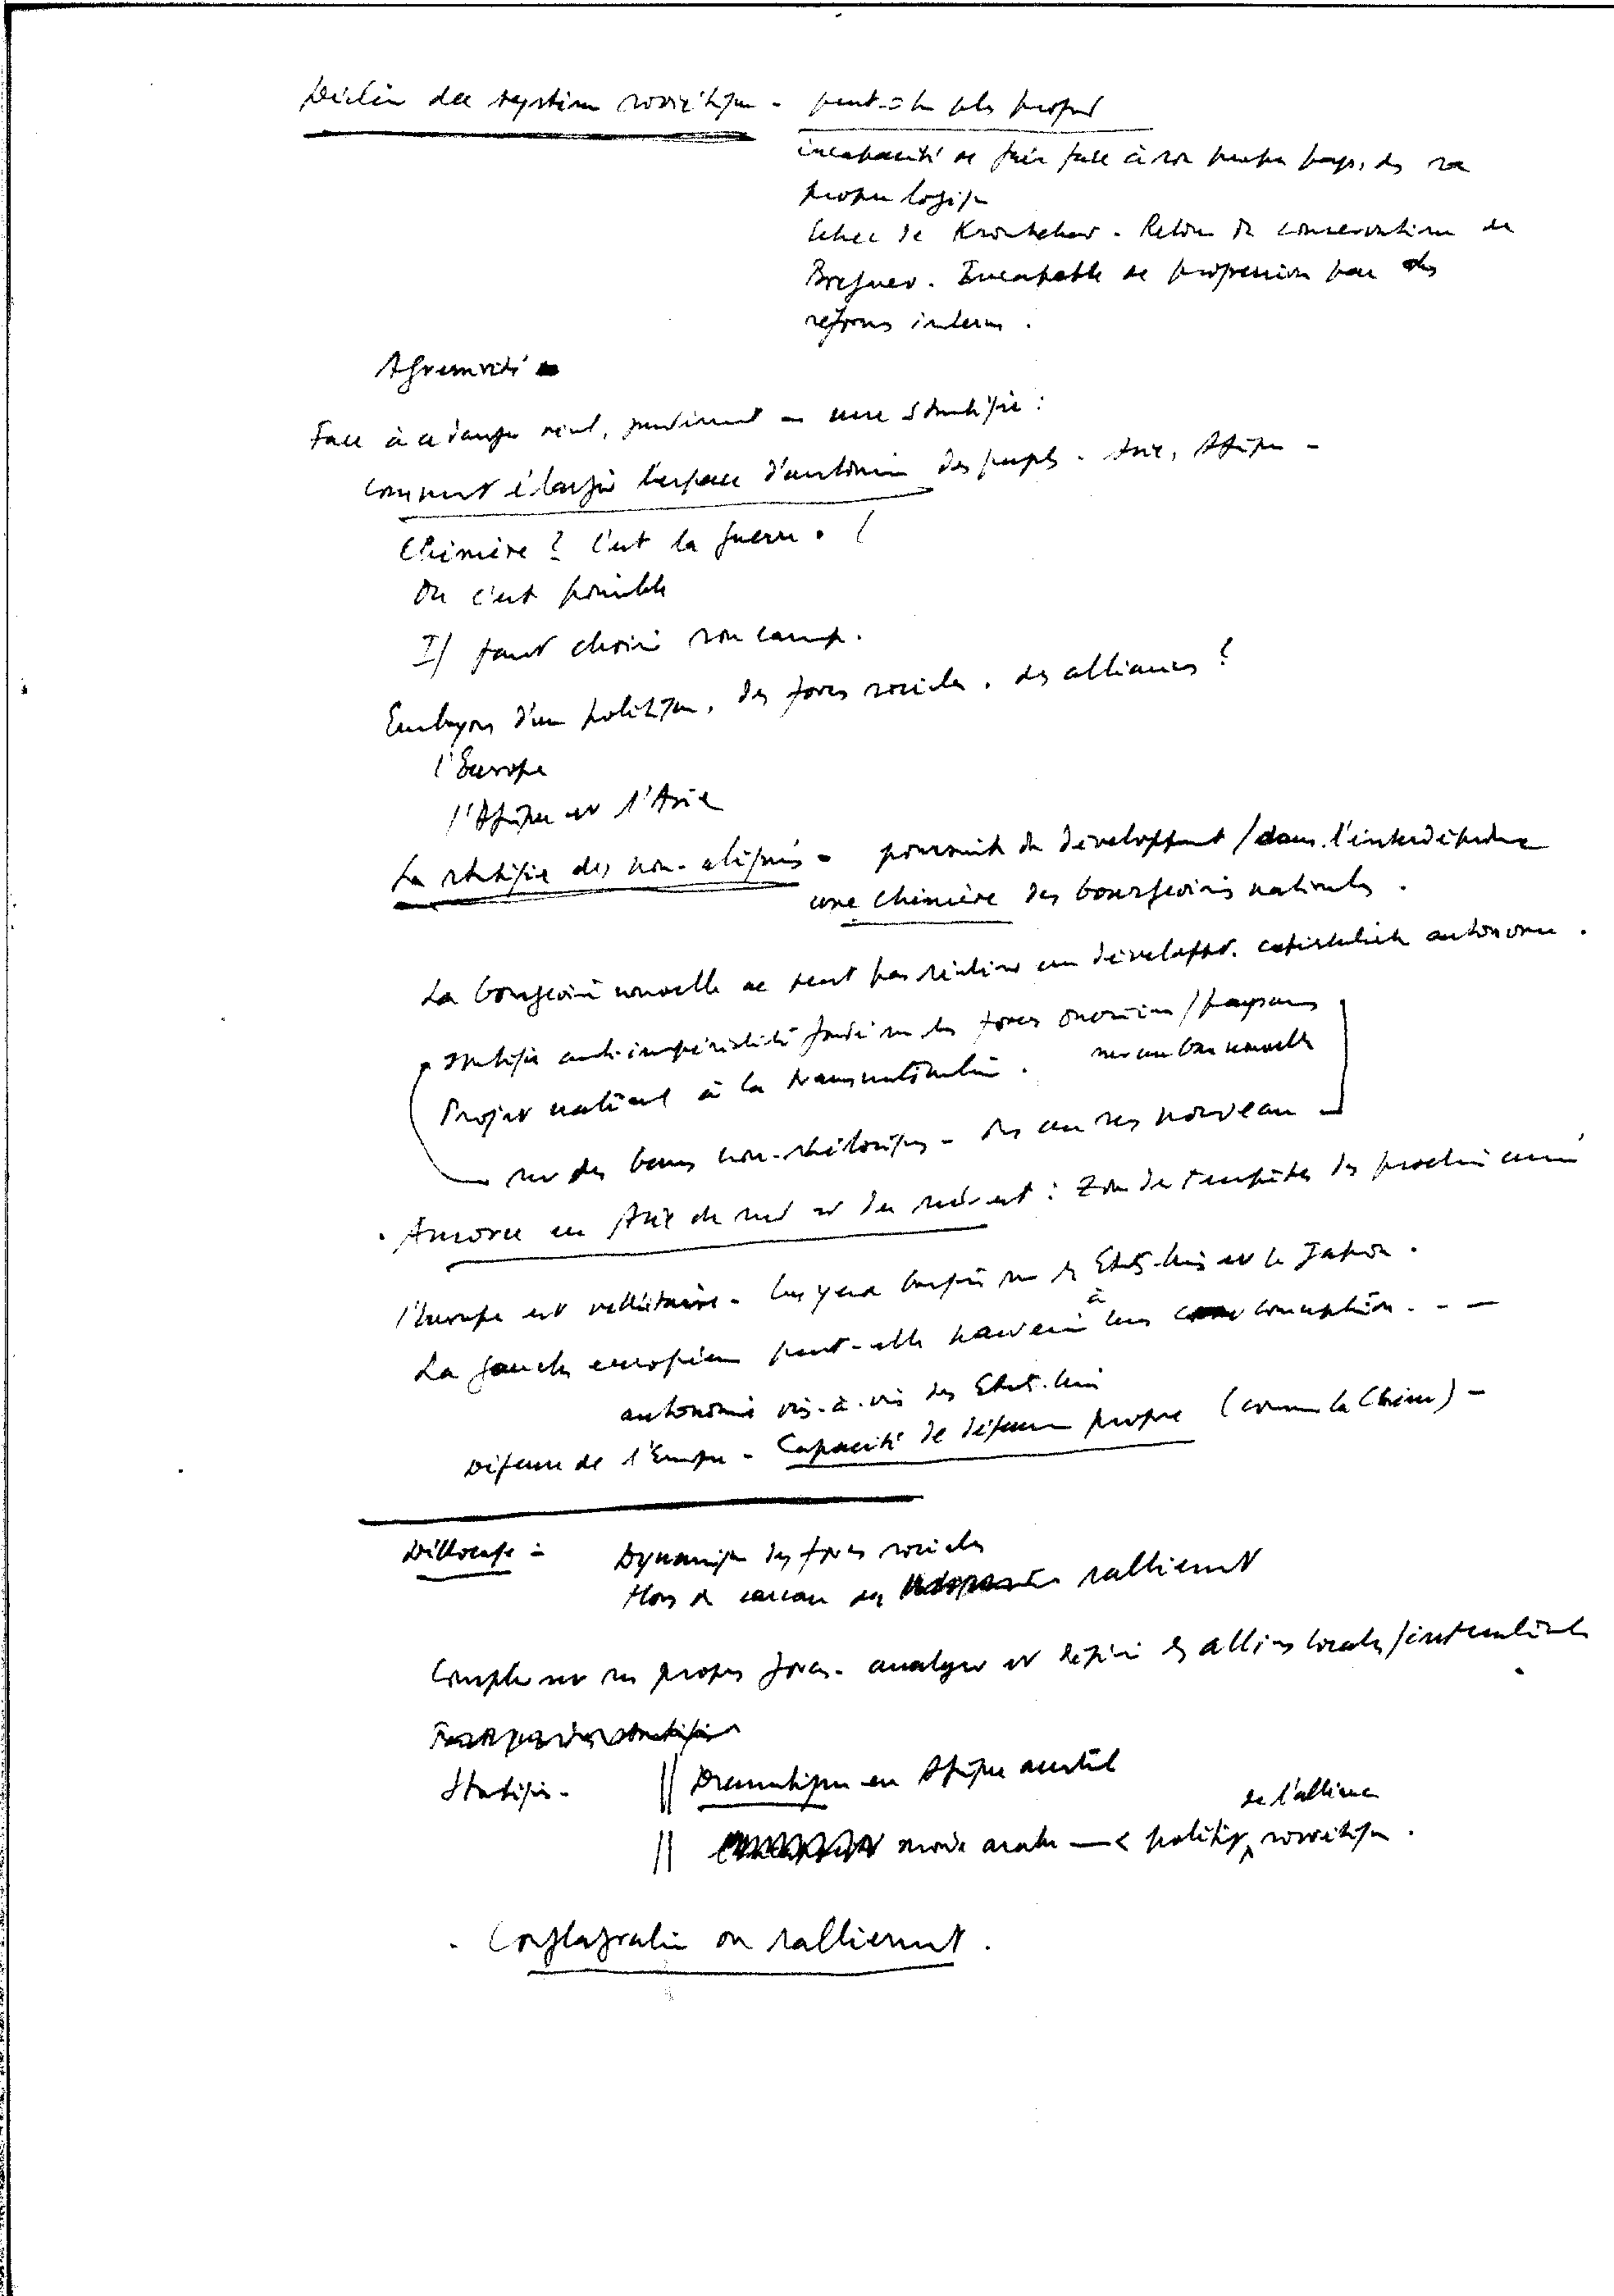 Déclin du système soviétique - peut-être plus profond
incapacité de faire face à son propre pays, de sa
propre logique
Echec de Kroutchev - Retour de conservatisme de
Brejnev. Incapable de progression par des
réformes internes.
Agressivité
Face à ce danger réel, une stratégie :
Comment élargir l'espace d'autonomie des peuples - Asie, Afrique -
Chimère ? C'est la guerre. (
Ou c'est possible
Il faut choisir son camp.
Embryons d'une politique, des forces sociales, des alliances ?
l'Europe
l'Afrique et l'Asie
La stratégie des non-alignés - poursuite du développement / dans l'interdépendance
une chimère des bourgeoisies nationales.
La bourgeoisie nouvelle ne peut pas réaliser un développt. capitaliste autonome.
stratégie anti-impérialiste fondée sur les forces ouvrières / paysannes
Projet national à la transnationalisation. sur une base nouvelle
sur des bases non-rhétoriques - des nouveau
. Amorce en Asie du sud et du sud-est : Zone des tempêtes des prochaines années
l'Europe est velléitaire - les yeux braqués sur les Etats-Unis et le Japon.
La gauche européenne peut-elle parvenir à leur conception - - -
autonomie vis-à-vis des Etats-Unis
Défense de l'Europe - Capacité de défense propre (comme la Chine) -
Déblocage = Dynamique des forces sociales
Hors de ralliement
Compter sur ses propres forces - analyser et définir les alliés locales / internationales.
Stratégie - || Dramatique en Afrique australe
de l'alliance
|| monde arabe —< politique soviétique.
. Conflagration ou ralliement.